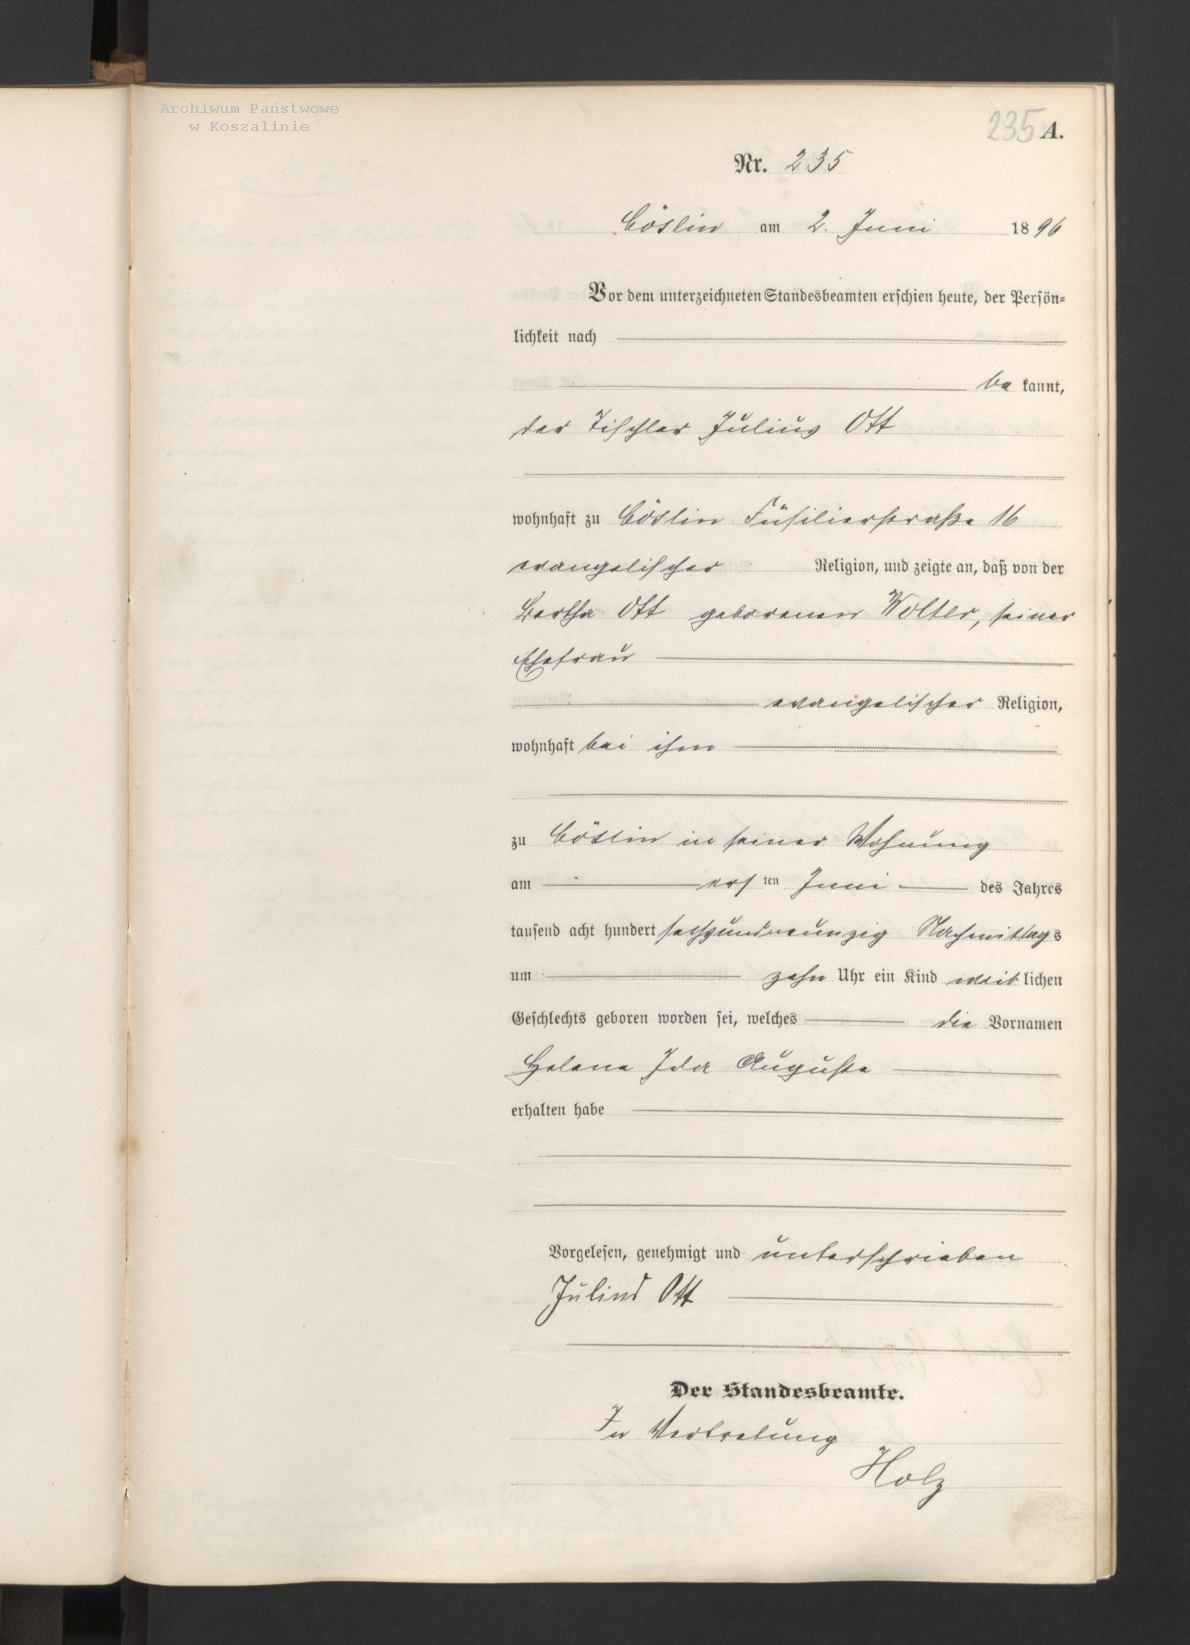 Archiwum Państwowe
w Koszalinie
235 A.
Nr. 235
Cöslin am 2. Juni 1896
Vor dem unterzeichneten Standesbeamten erschien heute, der Persön-
lichkeit nach
be kannt,
der Tischler Julius Ott
wohnhaft zu Cöslin Füsilierstraße 16
evangelischer Religion, und zeigte an, daß von der
Bertha Ott geborenen Wolter, seiner
Ehefrau
evangelischer Religion,
wohnhaft bei ihm
zu Cöslin in seiner Wohnung
am ersten Juni des Jahres
tausend acht hundert sechsundneunzig Nachmittags
um zehn Uhr ein Kind weiblichen
Geschlechts geboren worden sei, welches die Vornamen
Helene Ida Auguste
erhalten habe
Vorgelesen, genehmigt und unterschrieben
Julius Ott
Der Standesbeamte.
In Vertretung
Holz